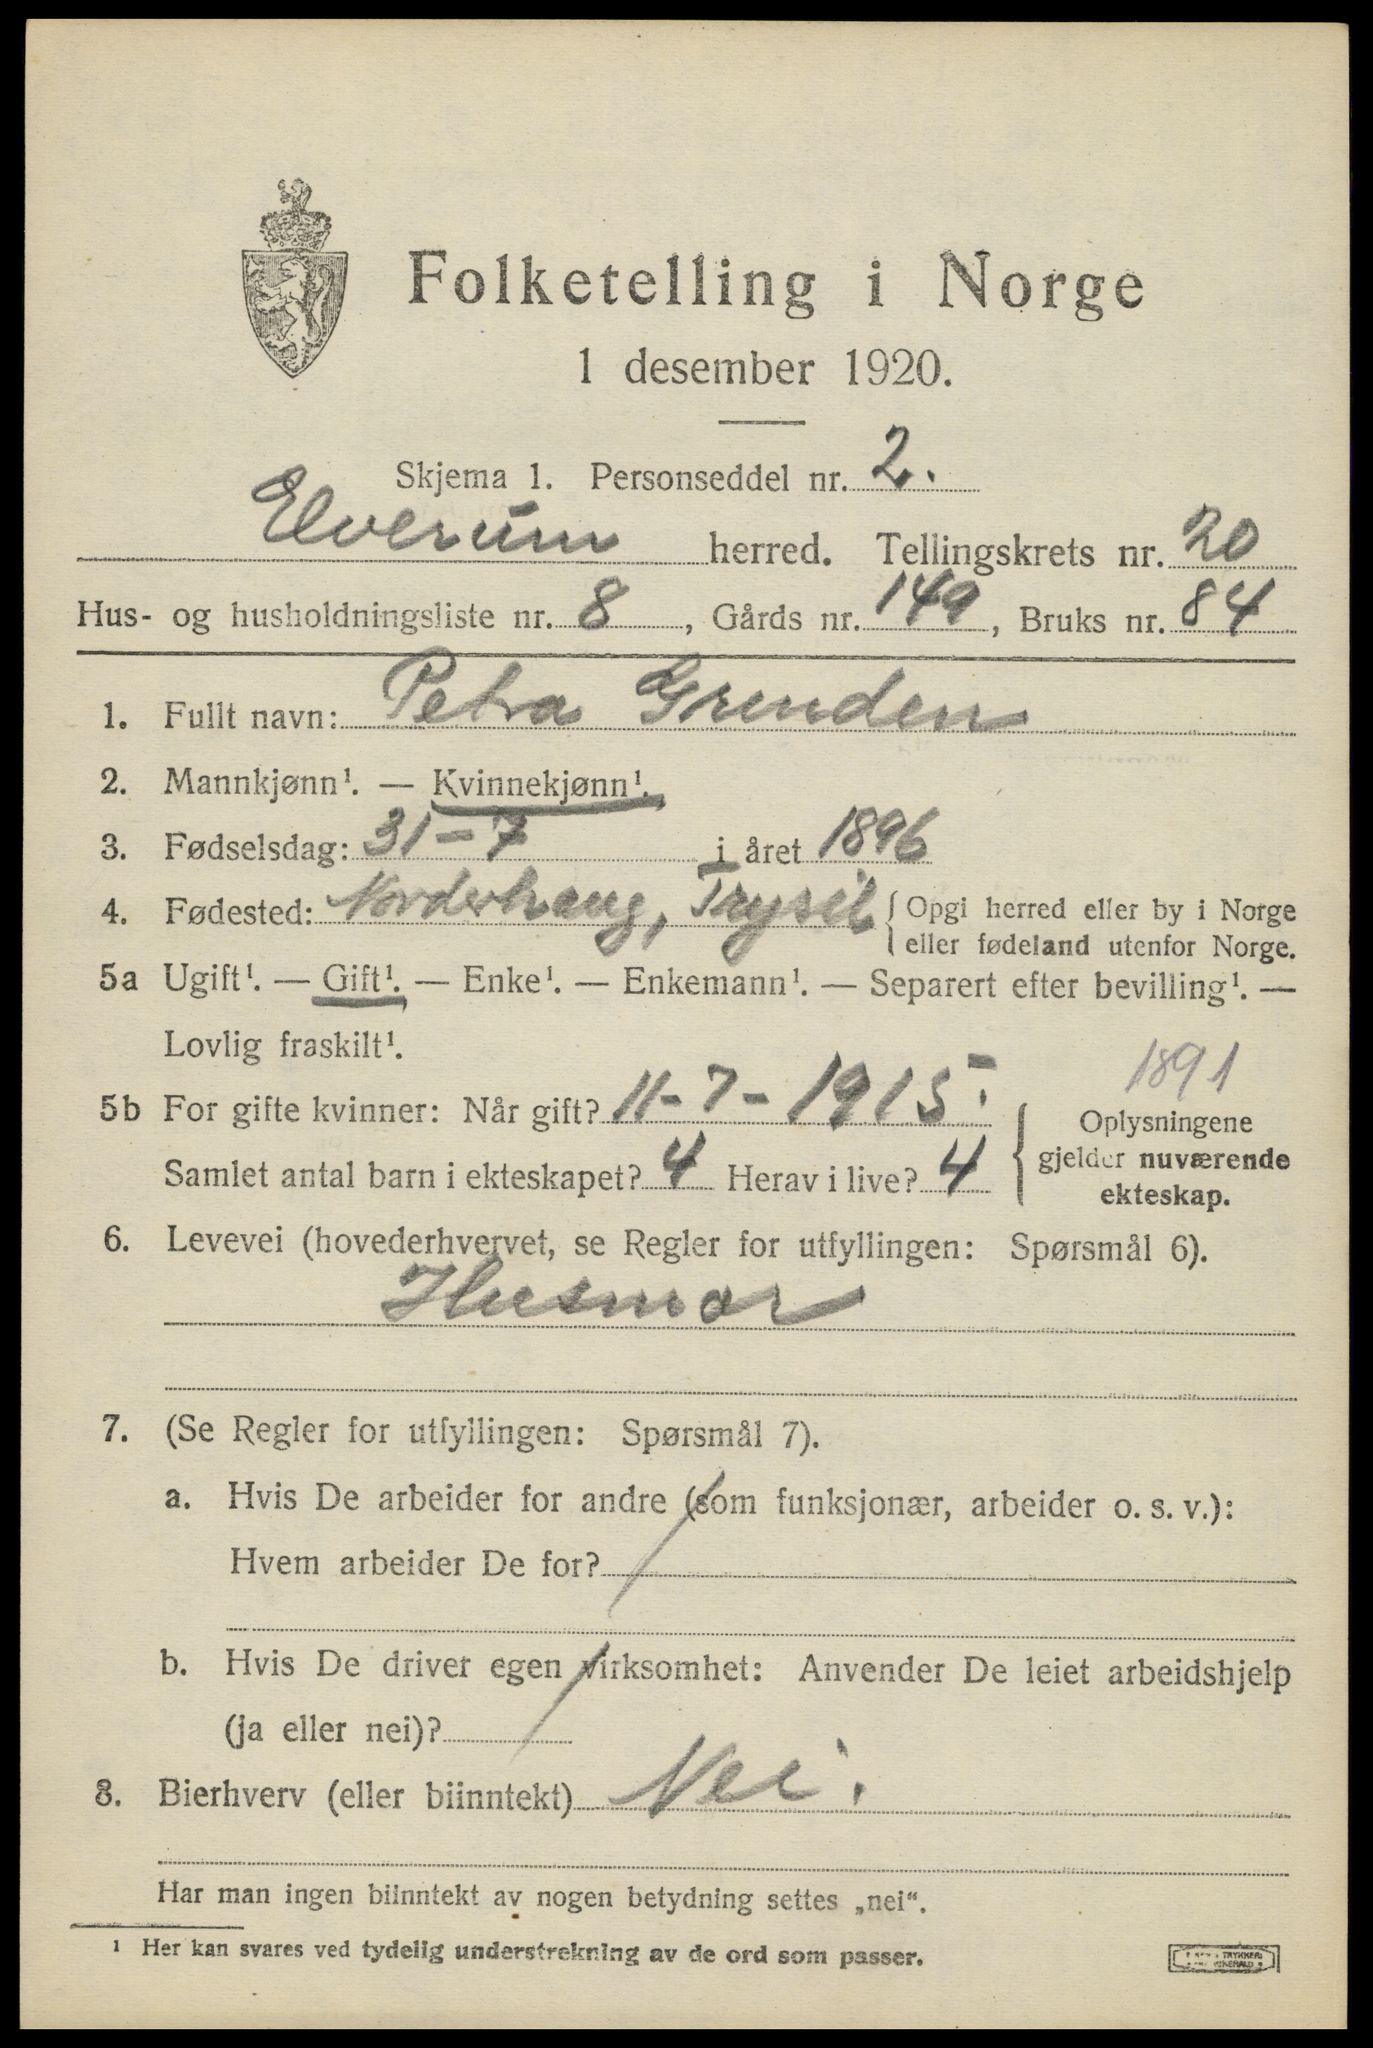 Folketelling i Norge
1 desember 1920.
Skjema 1. Personseddel nr. 2.
Elverum herred. Tellingskrets nr. 20
Hus- og husholdningsliste nr. 8, Gårds nr. 149, Bruks nr. 84
1. Fullt navn: Petra Grenden
2. Mannkjønn¹. — Kvinnekjønn¹.
3. Fødselsdag: 31-7 i året 1896
4. Fødested: Norderhaug, Trysil { Opgi herred eller by i Norge
eller fødeland utenfor Norge.
5a Ugift¹. — Gift¹. — Enke¹. — Enkemann¹. — Separert efter bevilling¹. —
Lovlig fraskilt¹.
1891
5b For gifte kvinner: Når gift? 11-7-1915. Oplysningene
gjelder nuværende
Samlet antal barn i ekteskapet? 4 Herav i live? 4 ekteskap.
6. Levevei (hovederhvervet, se Regler for utfyllingen: Spørsmål 6).
Husmor
7. (Se Regler for utfyllingen: Spørsmål 7).
a. Hvis De arbeider for andre (som funksjonær, arbeider o. s. v.):
Hvem arbeider De for? /
b. Hvis De driver egen virksomhet: Anvender De leiet arbeidshjelp
(ja eller nei)? /
8. Bierhverv (eller biinntekt) Nei.
Har man ingen biinntekt av nogen betydning settes „nei“.
¹ Her kan svares ved tydelig understrekning av de ord som passer.